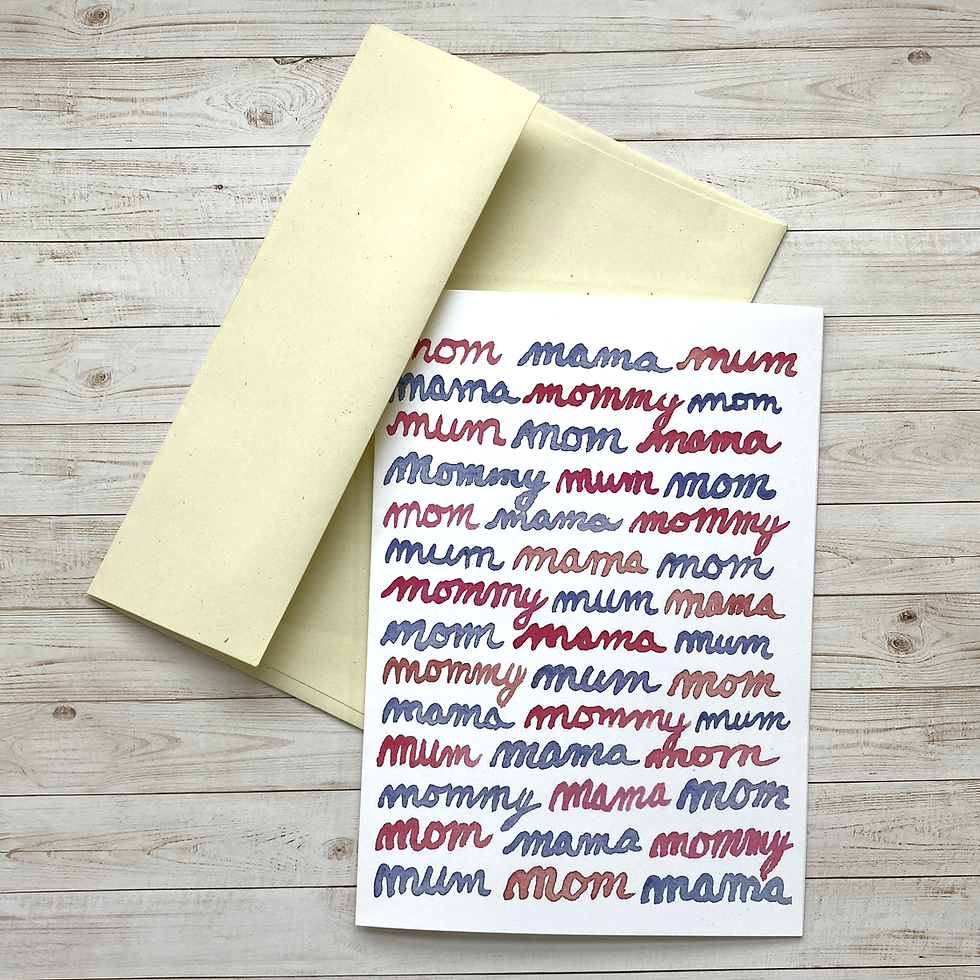 mom mama mum
mama mommy mom
mum mom mama
Mommy mum mom
mom mama mommy
mum mama mom
mommy mum mama
mom mama mum
mommy mum mom
mama mommy mum
mum mama mom
mommy mama mom
mom mama mommy
mum mom mama